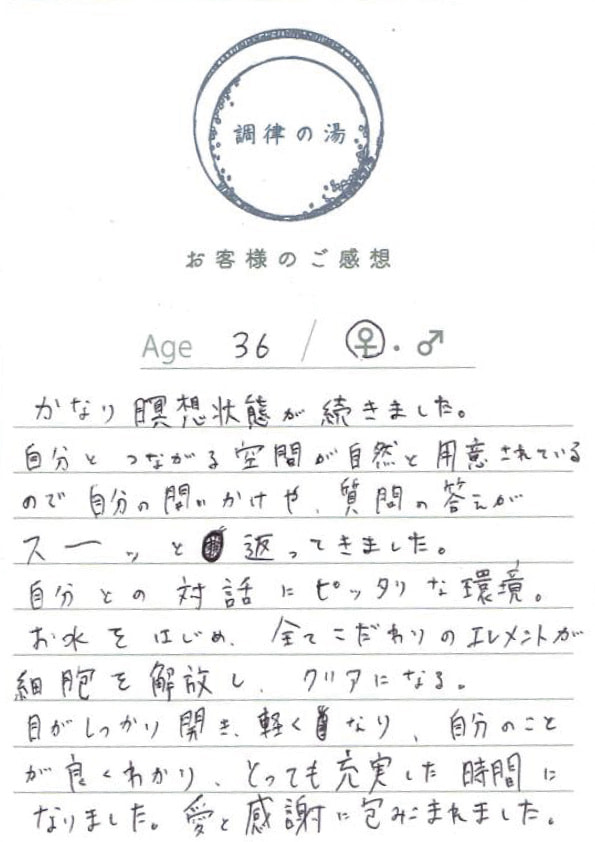 調律の湯
お客様のご感想
Age 36 / ♀・♂
かなり瞑想状態が続きました。
自分とつながる空間が自然と用意されている
ので自分の問いかけや、質問の答えが
スーッと返ってきました。
自分との対話にピッタリな環境。
お水をはじめ、全てこだわりのエレメントが
細胞を解放し、クリアになる。
目がしっかり開き、軽くなり、自分のこと
が良くわかり、とっても充実した時間に
なりました。愛と感謝に包みこまれました。